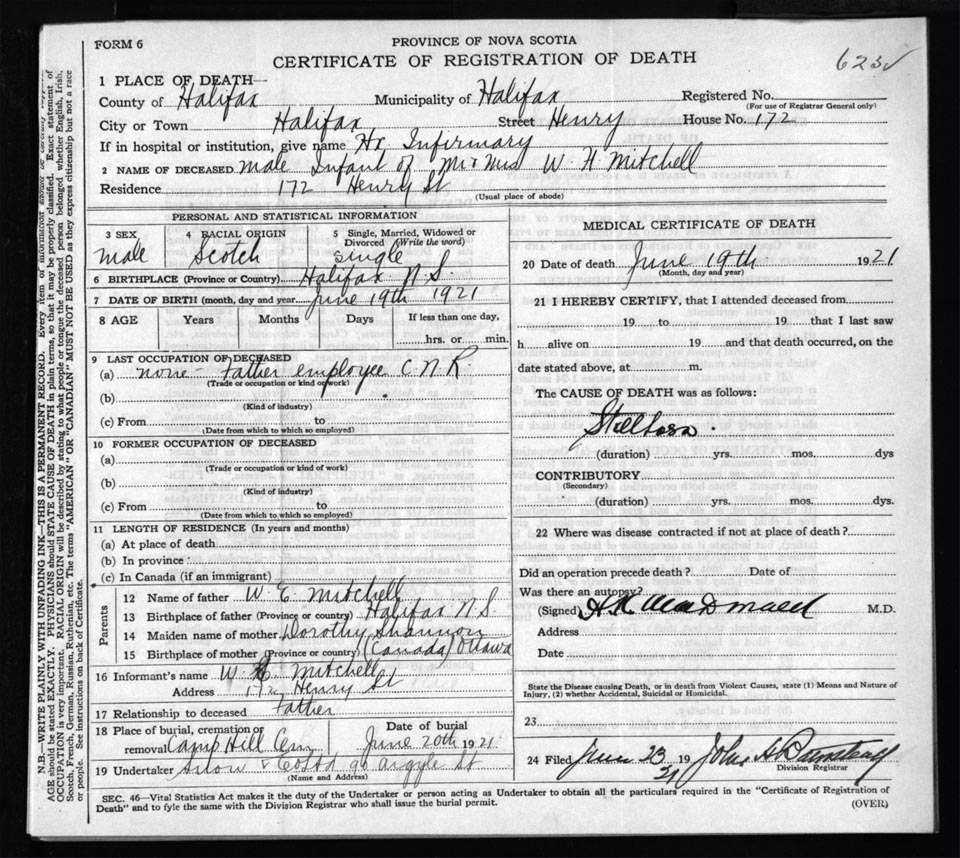 FORM 6
PROVINCE OF NOVA SCOTIA
CERTIFICATE OF REGISTRATION OF DEATH
623
1 PLACE OF DEATH—
County of Halifax Municipality of Halifax Registered No.
(For use of Registrar General only)
City or Town Halifax Street Henry House No. 172
If in hospital or institution, give name Hx Infirmary
2 NAME OF DECEASED male Infant of Mr & Mrs W. H. Mitchell
Residence 172 Henry St
(Usual place of abode)
PERSONAL AND STATISTICAL INFORMATION
3 SEX 4 RACIAL ORIGIN 5 Single, Married, Widowed or Divorced (Write the word)
male Scotch single
6 BIRTHPLACE (Province or Country) Halifax N.S.
7 DATE OF BIRTH (month, day and year) June 19th 1921
8 AGE Years Months Days If less than one day,
hrs. or min.
9 LAST OCCUPATION OF DECEASED
(a) none – Father employee C.N.R.
(Trade or occupation or kind of work)
(b)
(Kind of industry)
(c) From to
(Date from which to which so employed)
10 FORMER OCCUPATION OF DECEASED
(a)
(Trade or occupation or kind of work)
(b)
(Kind of industry)
(c) From to
(Date from which to which so employed)
11 LENGTH OF RESIDENCE (In years and months)
(a) At place of death
(b) In province
(c) In Canada (if an immigrant)
Parents
12 Name of father W. E. Mitchell
13 Birthplace of father (Province or country) Halifax N.S.
14 Maiden name of mother Dorothy Shannon
15 Birthplace of mother (Province or country) (Canada) Ottawa
16 Informant's name W. E. Mitchell
Address 172 Henry St
17 Relationship to deceased Father
18 Place of burial, cremation or removal Camp Hill Cem Date of burial June 20th 1921
19 Undertaker Snow & Co Ltd 90 Argyle St
(Name and Address)
MEDICAL CERTIFICATE OF DEATH
20 Date of death June 19th 1921
(Month, day and year)
21 I HEREBY CERTIFY, that I attended deceased from
19 to 19 that I last saw
h alive on 19 and that death occurred, on the
date stated above, at m.
The CAUSE OF DEATH was as follows:
Stillborn
(duration) yrs. mos. dys
CONTRIBUTORY
(Secondary)
(duration) yrs. mos. dys.
22 Where was disease contracted if not at place of death?
Did an operation precede death? Date of
Was there an autopsy?
(Signed) MacDonald M.D.
Address
Date
State the Disease causing Death, or in death from Violent Causes, state (1) Means and Nature of
Injury, (2) whether Accidental, Suicidal or Homicidal.
23
24 Filed June 23 19 21 John
Division Registrar
SEC. 46—Vital Statistics Act makes it the duty of the Undertaker or person acting as Undertaker to obtain all the particulars required in the "Certificate of Registration of
Death" and to fyle the same with the Division Registrar who shall issue the burial permit.
(OVER)
N.B.—WRITE PLAINLY WITH UNFADING INK—THIS IS A PERMANENT RECORD. Every item of information should be carefully
AGE should be stated EXACTLY. PHYSICIANS should STATE CAUSE OF DEATH in plain terms, so that it may be properly classified. Exact statement of
OCCUPATION is very important. RACIAL ORIGIN will be described by stating to what people or tongue the deceased person belonged whether English, Irish,
Scotch, French, German, Russian, Ruthenian, etc. The terms "AMERICAN" OR "CANADIAN" MUST NOT BE USED as they express citizenship but not a race
or people. See instructions on back of Certificate.